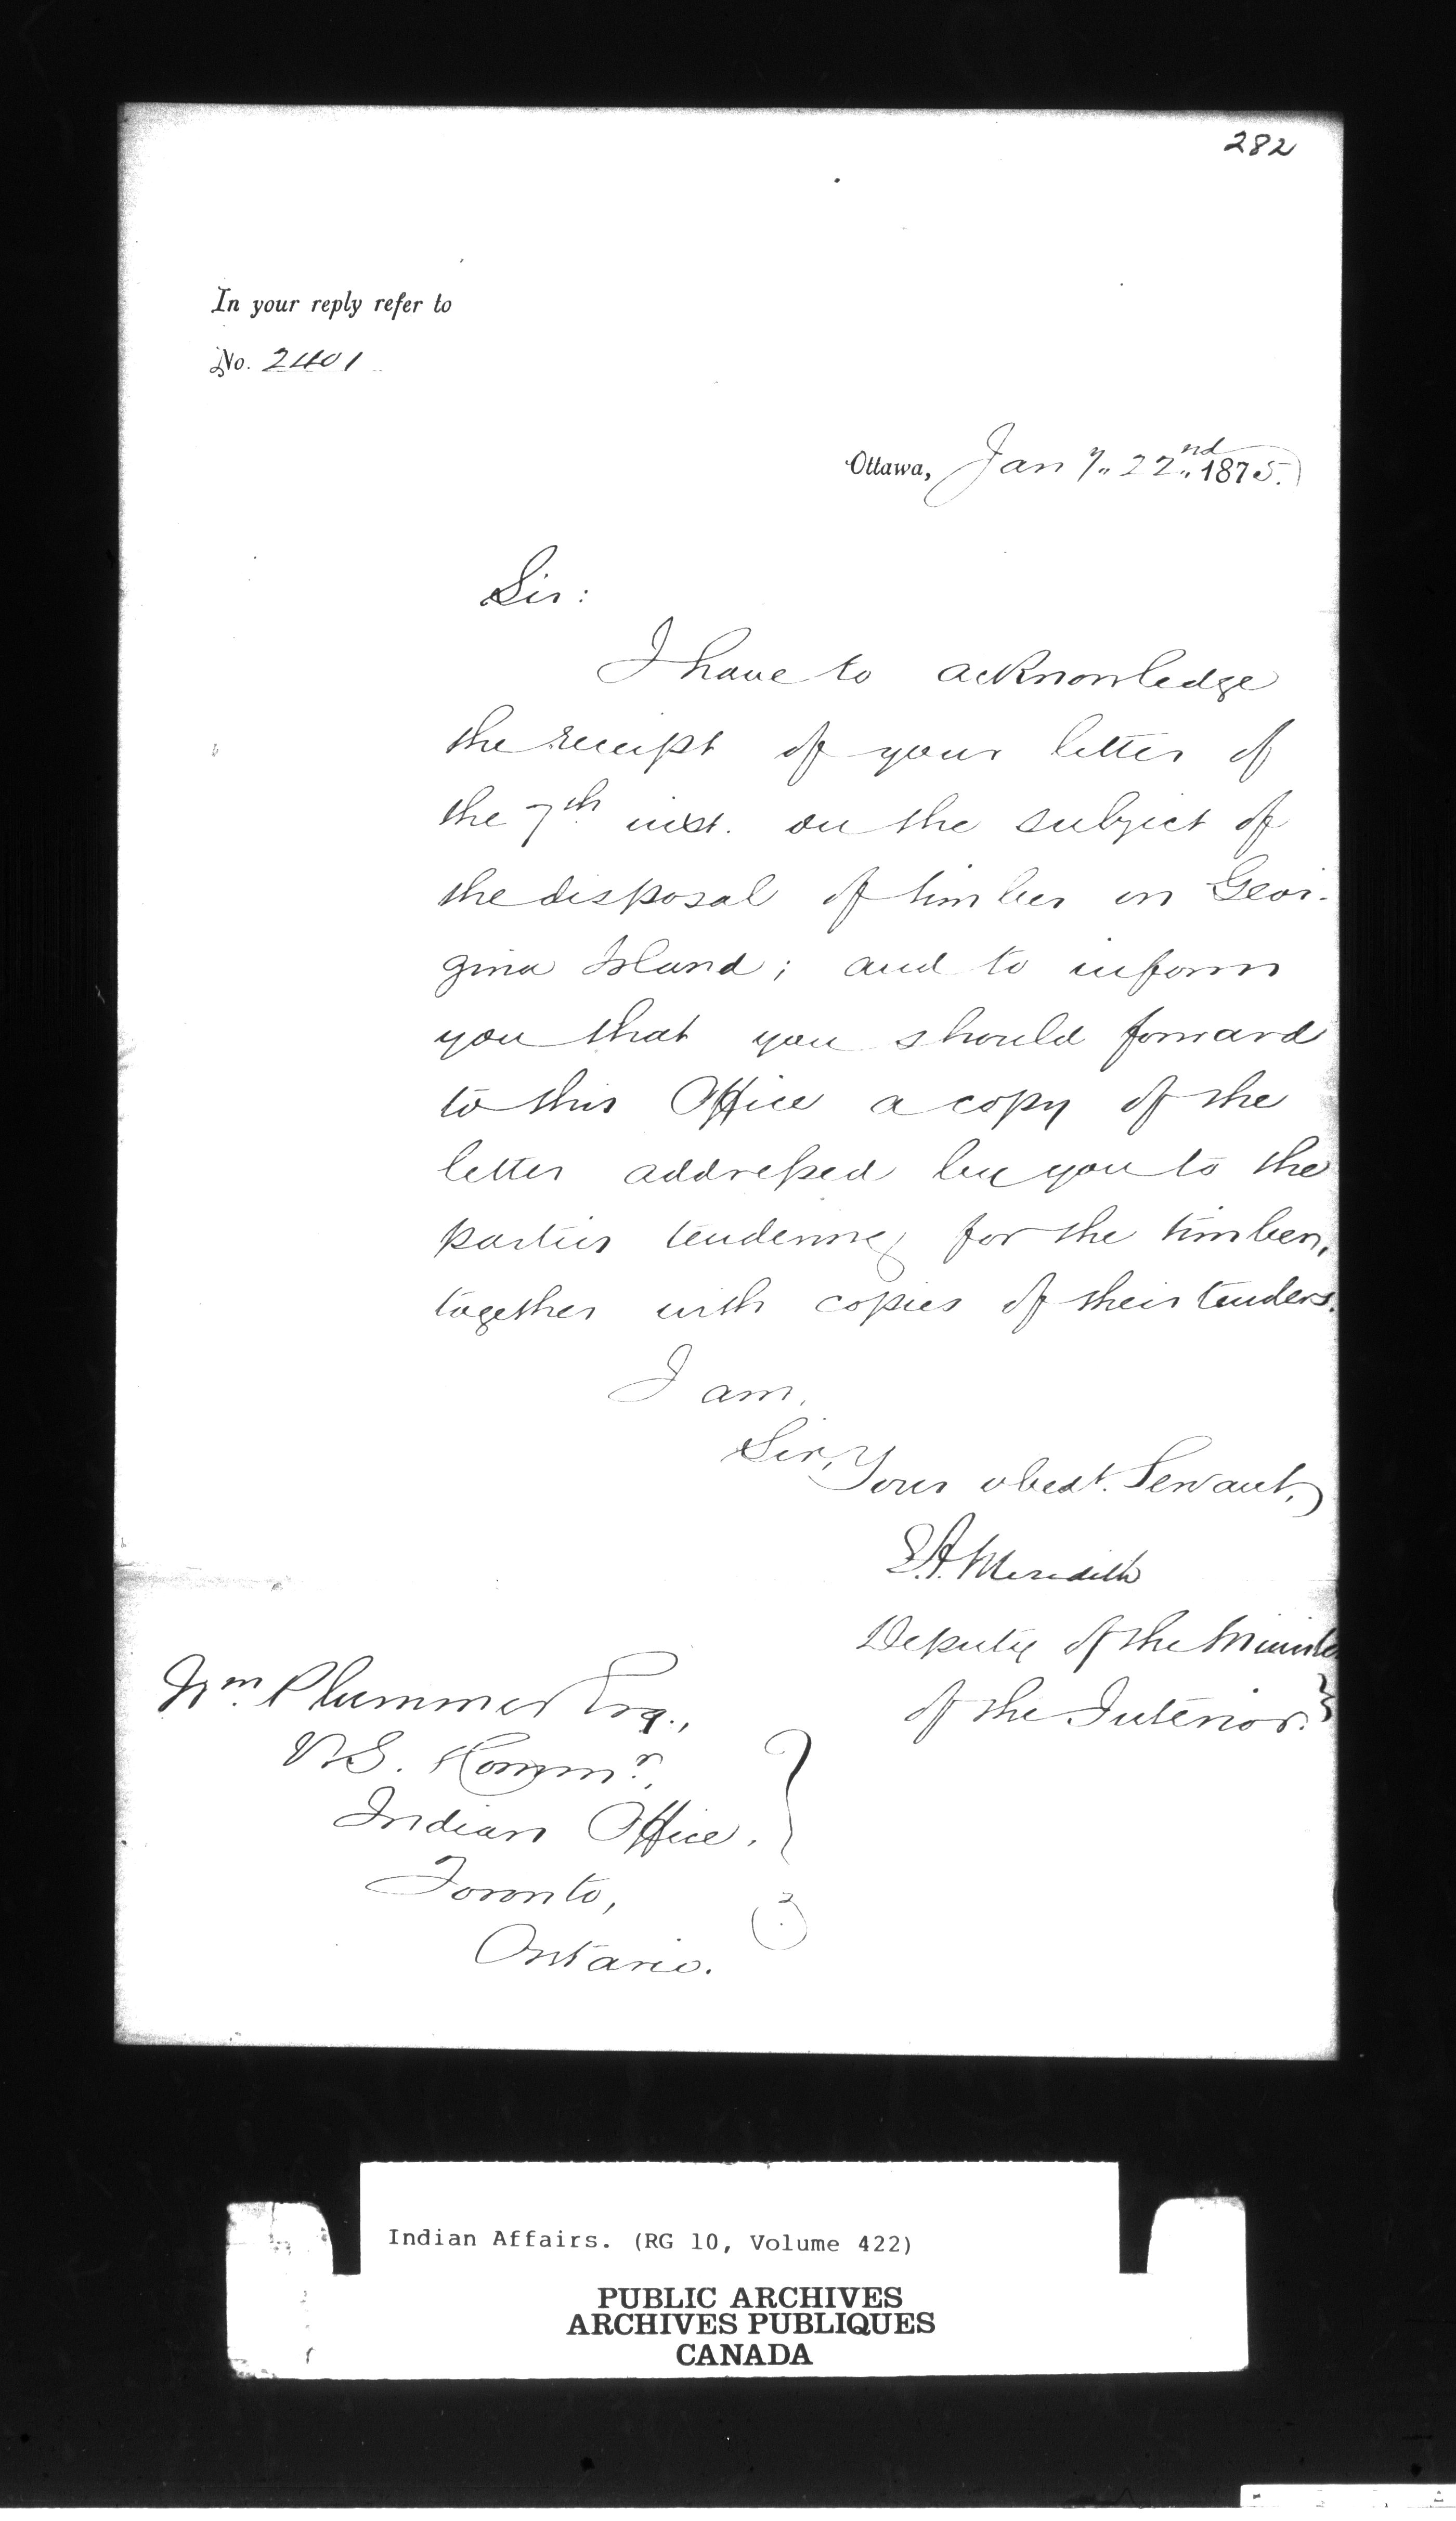 282
In your reply refer to
No. 2401
Ottawa, Jany. 22nd. 1875.
Sir:
I have to acknowledge
the receipt of your letter of
the 7th inst. on the subject of
the disposal of timber on Geor-
gina Island; and to inform
you that you should forward
to this Office a copy of the
letter addressed by you to the
parties tendering for the timber,
together with copies of their tenders.
I am,
Sir,
Your obedt. Servant,
E.A. Meredith
Deputy of the Minister
of the Interior.
Wm. Plummer Esq.,
Commr.
Indian Office,
Toronto,
Ontario.
Indian Affairs. (RG 10, Volume 422)
PUBLIC ARCHIVES
ARCHIVES PUBLIQUES
CANADA